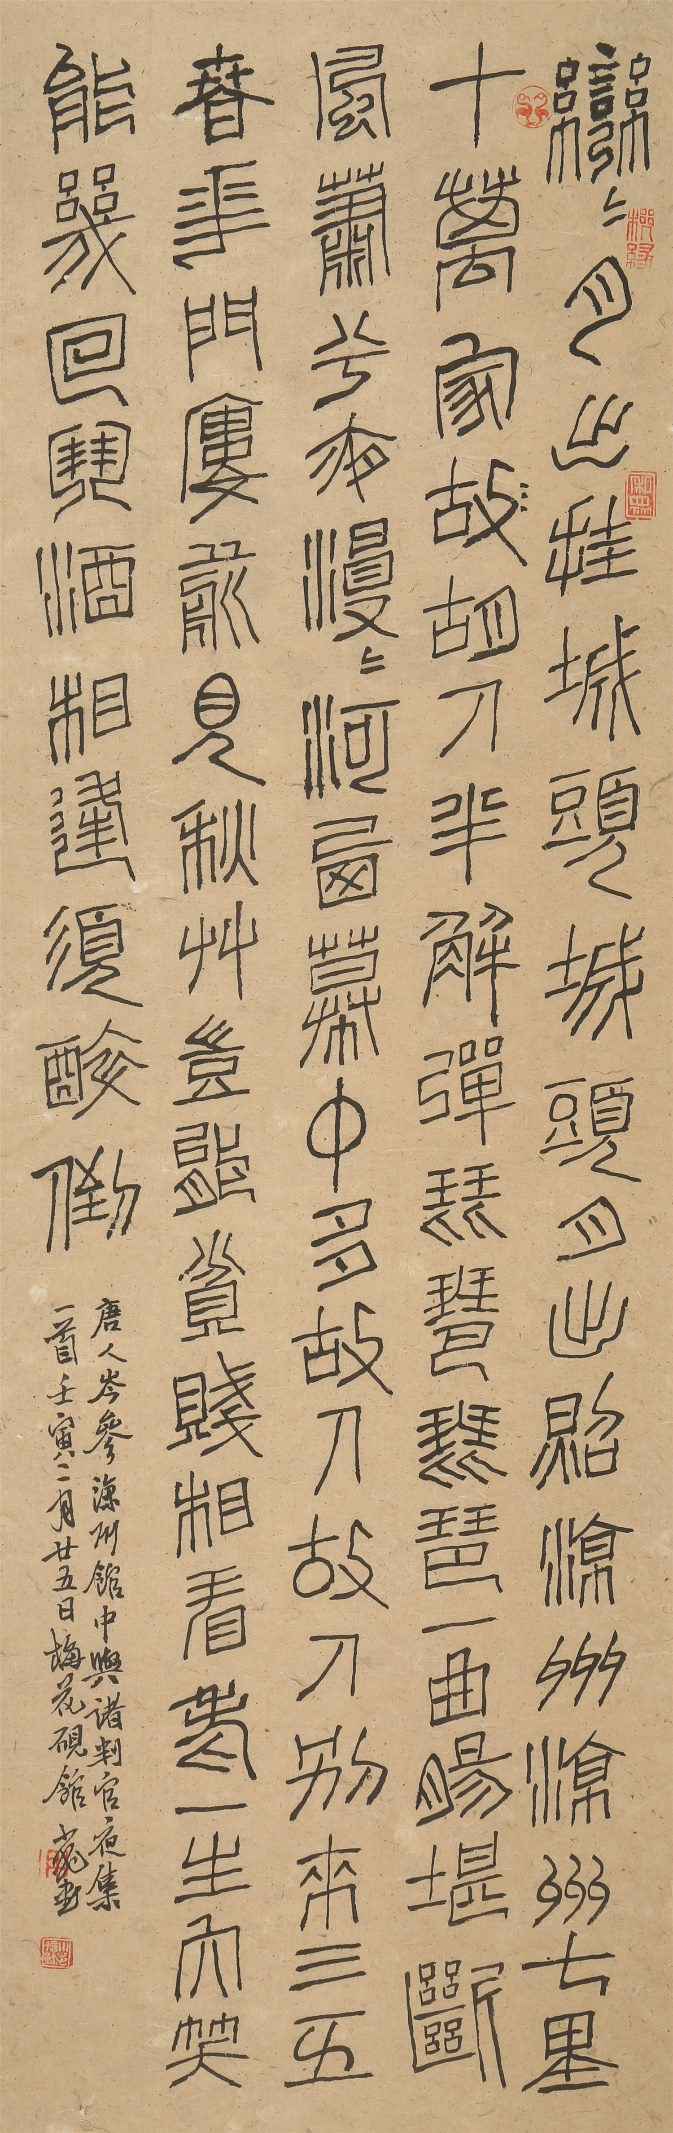 彎〻月出挂城頭城頭月出照涼州涼州七里
十萬家故胡人半解彈琵琶琵琶一曲腸堪斷
風蕭兮夜漫〻河西幕中多故人故人別來三五
春花門樓前見秋艸豈能貧賤相看老一生大笑
能幾回鬥酒相逢須醉倒
唐人岑參涼州館中與諸判官夜集
一首壬寅二月廿五日梅花硯館